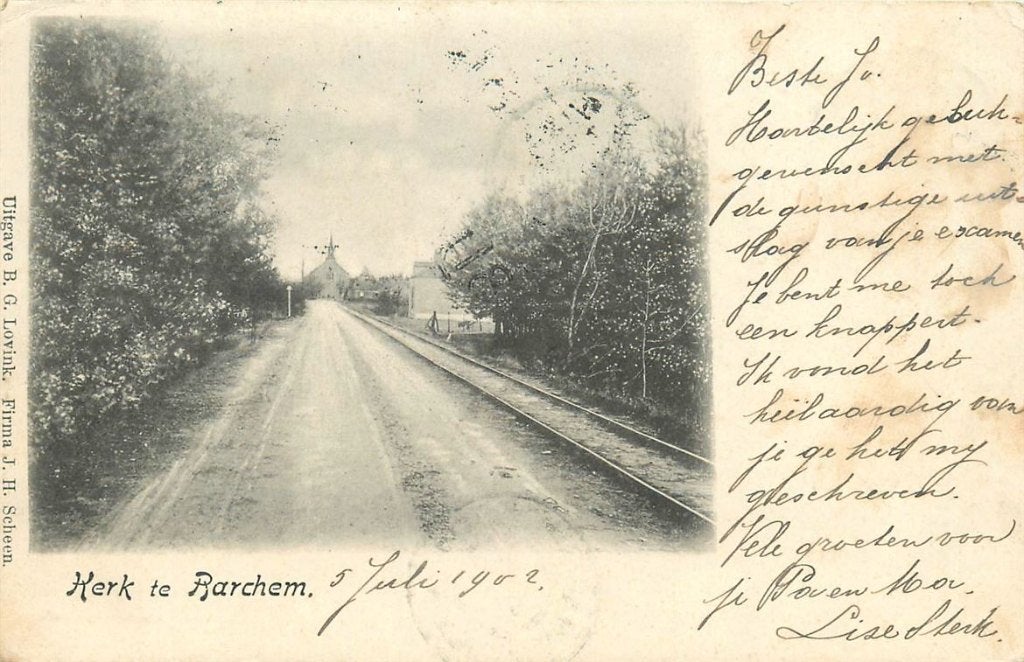 Uitgave B. G. Lovink. Firma J. H. Scheen.
Kerk te Barchem.
5 Juli 1902.
Beste Jo.
Hartelijk geluk-
gewenscht met
de gunstige uit-
slag van je examen
Je bent me toch
een knappert.
Ik vond het
heil aardig van
je ge het my
geschreven.
Vele groeten voor
je Pa en Ma.
Lise Sterk.